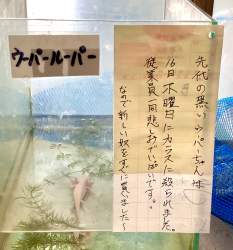 ウーパールーパー
先代の黒いウーパーちゃんは
16日木曜日にカラスに殺られました。
従業員一同悲しみでいっぱいです。
なので新しい奴をすぐに買いました～